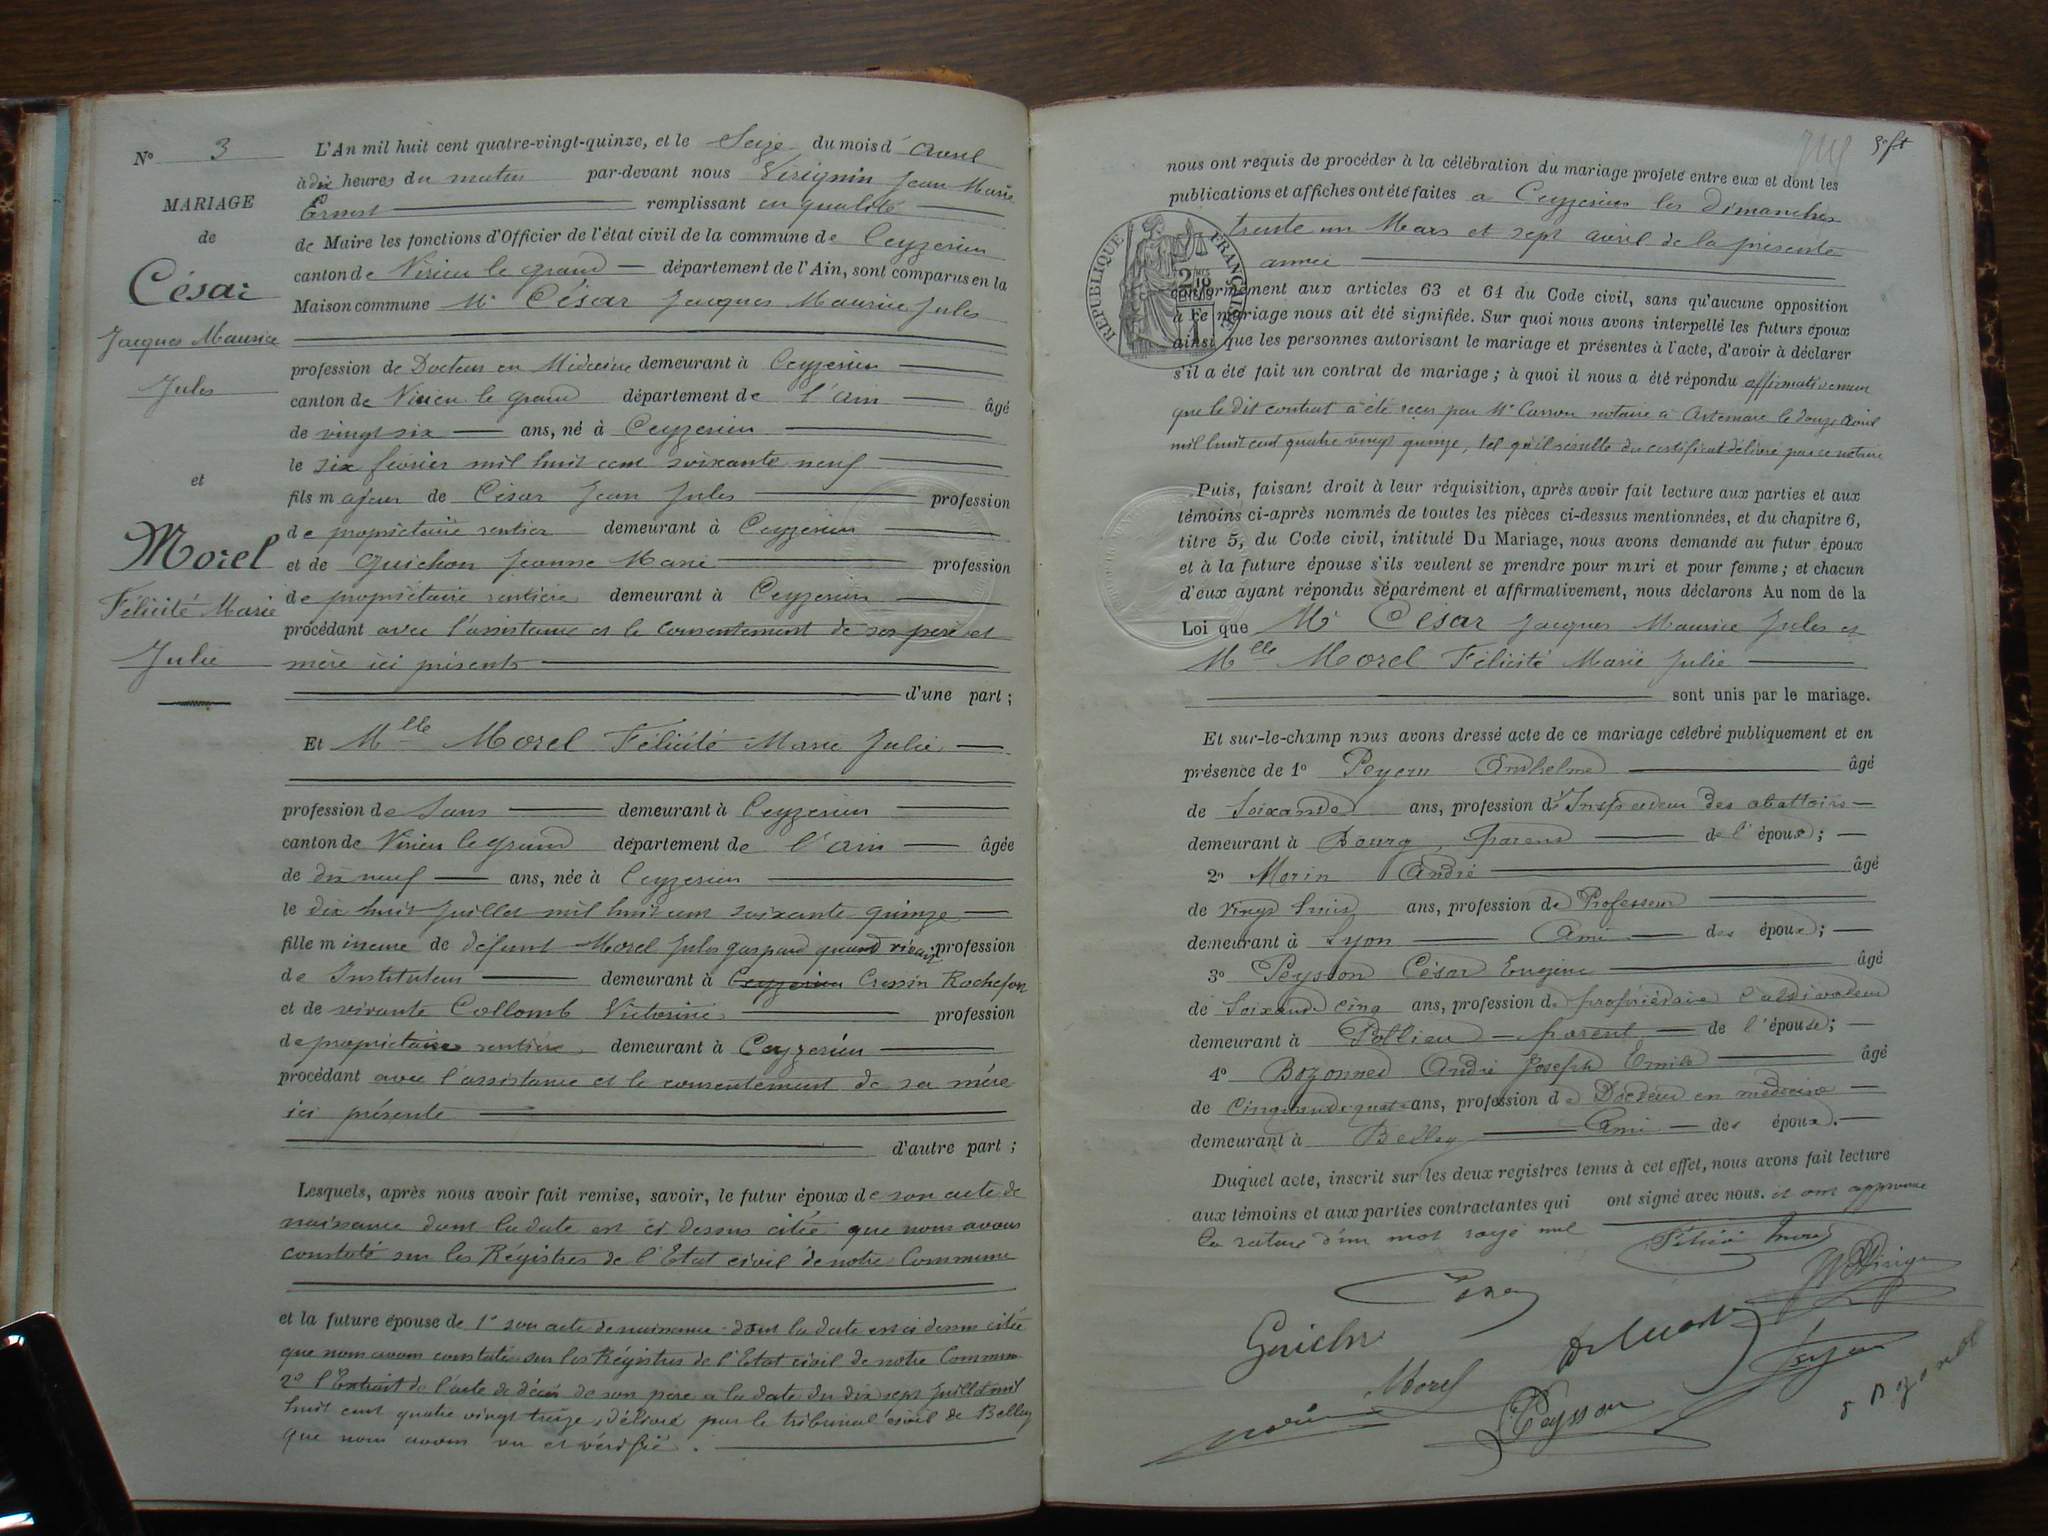 N° 3
MARIAGE
de
César
Jacques Maurice
Jules
et
Morel
Félicité Marie
Julie
L'An mil huit cent quatre-vingt-quinze, et le Seize du mois d' avril
à dix heures du matin par-devant nous Virignin Jean Marie
Ernest remplissant en qualité
de Maire les fonctions d'Officier de l'état civil de la commune de Ceyzerieu
canton de Virieu le grand département de l'Ain, sont comparus en la
Maison commune Mr César Jacques Maurice Jules
profession de Docteur en Médecine demeurant à Ceyzerieu
canton de Virieu le grand département de l'ain âgé
de vingt six ans, né à Ceyzerieu
le six février mil huit cent soixante neuf
fils majeur de César Jean Jules profession
de propriétaire rentier demeurant à Ceyzerieu
et de Guichon Jeanne Marie profession
de propriétaire rentière demeurant à Ceyzerieu
procédant avec l'assistance et le consentement de ses père et
mère ici présents
d'une part ;
Et Mlle Morel Félicité Marie Julie
profession de Sans demeurant à Ceyzerieu
canton de Virieu le grand département de l'ain âgée
de dix neuf ans, née à Ceyzerieu
le dix huit Juillet mil huit cent soixante quinze
fille mineure de défunt Morel Jules gaspard quand vivait profession
de Instituteur demeurant à Ceyzerieu Cressin Rochefort
et de vivante Collomb Victorine profession
de propriétaire rentière demeurant à Ceyzerieu
procédant avec l'assistance et le consentement de sa mère
ici présente
d'autre part ;
Lesquels, après nous avoir fait remise, savoir, le futur époux de son acte de
naissance dont la date est ci dessus citée que nous avons
constaté sur les Régistres de l'Etat civil de notre Commune
et la future épouse de 1° son acte de naissance dont la date est ci dessus citée
que nous avons constaté sur les Régistres de l'Etat civil de notre Commune
2° l'Extrait de l'acte de décès de son père a la date du dix sept Juillet mil
huit cent quatre vingt treize, délivré par le tribunal civil de Belley
que nous avons vu et vérifié.
nous ont requis de procéder à la célébration du mariage projeté entre eux et dont les
publications et affiches ont été faites a Ceyzerieu les dimanches
trente un Mars et sept avril de la présente
année
RÉPUBLIQUE FRANÇAISE
conformément aux articles 63 et 64 du Code civil, sans qu'aucune opposition
à ce mariage nous ait été signifiée. Sur quoi nous avons interpellé les futurs époux
ainsi que les personnes autorisant le mariage et présentes à l'acte, d'avoir à déclarer
s'il a été fait un contrat de mariage ; à quoi il nous a été répondu affirmativement
que le dit contrat a été reçu par Me Carron notaire à Artemare le douze avril
mil huit cent quatre vingt quinze, tel qu'il résulte du certificat délivré par ce notaire
Puis, faisant droit à leur réquisition, après avoir fait lecture aux parties et aux
témoins ci-après nommés de toutes les pièces ci-dessus mentionnées, et du chapitre 6,
titre 5, du Code civil, intitulé Du Mariage, nous avons demandé au futur époux
et à la future épouse s'ils veulent se prendre pour mari et pour femme ; et chacun
d'eux ayant répondu séparément et affirmativement, nous déclarons Au nom de la
Loi que Mr César Jacques Maurice Jules et
Mlle Morel Félicité Marie Julie
sont unis par le mariage.
Et sur-le-champ nous avons dressé acte de ce mariage célébré publiquement et en
présence de 1° Anthelme âgé
de Soixante ans, profession d'Inspecteur des abattoirs
demeurant à Bourg, parent de l'épouse ;
2° Morin André âgé
de Vingt huit ans, profession de Professeur
demeurant à Lyon Ami des époux ;
3° Peysson César Eugène âgé
de Soixante cinq ans, profession de propriétaire cultivateur
demeurant à Pollieu parent de l'épouse ;
4° Bozonnet André Joseph Emile âgé
de Cinquante quatre ans, profession de Docteur en médecine
demeurant à Belley Ami des époux.
Duquel acte, inscrit sur les deux registres tenus à cet effet, nous avons fait lecture
aux témoins et aux parties contractantes qui ont signé avec nous. et ont approuvé
la rature d'un mot rayé nul
Félicie Morel
César
Virignin
Guichon
Morel
Peysson
Morin
Bozonnet